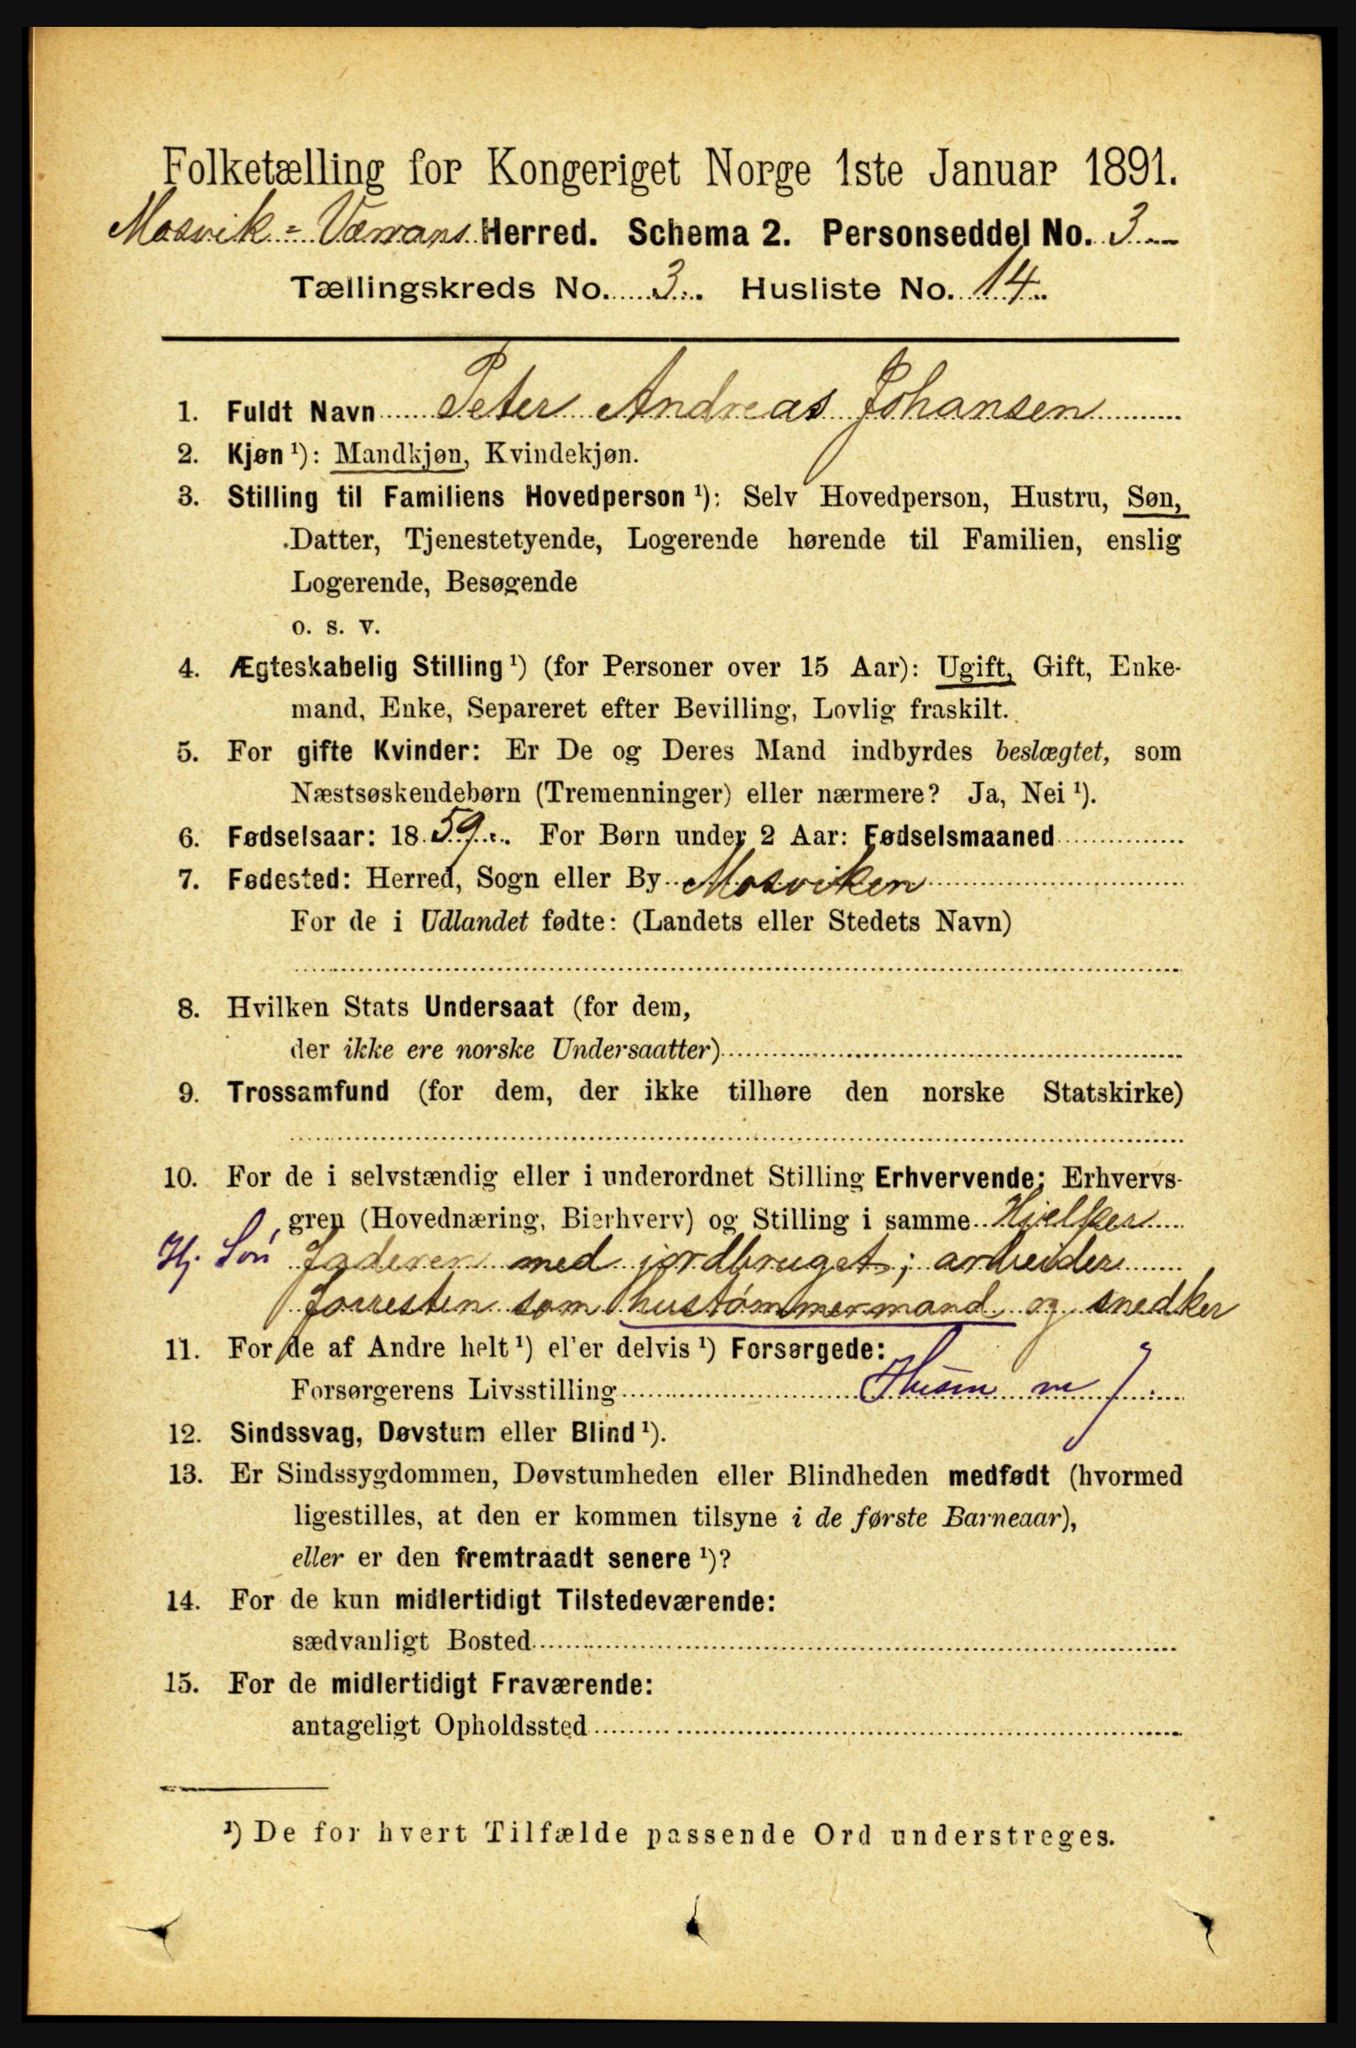 Folketælling for Kongeriget Norge 1ste Januar 1891.
Mosvik = Værrans Herred. Schema 2. Personseddel No. 3
Tællingskreds No. 3. Husliste No. 14.
1. Fuldt Navn Peter Andreas Johansen
2. Kjøn ¹): Mandkjøn, Kvindekjøn.
3. Stilling til Familiens Hovedperson ¹): Selv Hovedperson, Hustru, Søn,
Datter, Tjenestetyende, Logerende hørende til Familien, enslig
Logerende, Besøgende
o. s. v.
4. Ægteskabelig Stilling ¹) (for Personer over 15 Aar): Ugift, Gift, Enke-
mand, Enke, Separeret efter Bevilling, Lovlig fraskilt.
5. For gifte Kvinder: Er De og Deres Mand indbyrdes beslægtet, som
Næstsøskendebørn (Tremenninger) eller nærmere? Ja, Nei ¹).
6. Fødselsaar: 1859. For Børn under 2 Aar: Fødselsmaaned
7. Fødested: Herred, Sogn eller By Mosviken
For de i Udlandet fødte: (Landets eller Stedets Navn)
8. Hvilken Stats Undersaat (for dem,
der ikke ere norske Undersaatter)
9. Trossamfund (for dem, der ikke tilhøre den norske Statskirke)
10. For de i selvstændig eller i underordnet Stilling Erhvervende: Erhvervs-
gren (Hovednæring, Bierhverv) og Stilling i samme Hjelper
Hj. Søn faderen med jordbruget; arbeider
forresten som hustømmermand og snedker
11. For de af Andre helt ¹) eller delvis ¹) Forsørgede:
Forsørgerens Livsstilling Husm m J.
12. Sindssvag, Døvstum eller Blind ¹).
13. Er Sindssygdommen, Døvstumheden eller Blindheden medfødt (hvormed
ligestilles, at den er kommen tilsyne i de første Barneaar),
eller er den fremtraadt senere ¹)?
14. For de kun midlertidigt Tilstedeværende:
sædvanligt Bosted
15. For de midlertidigt Fraværende:
antageligt Opholdssted
¹) De for hvert Tilfælde passende Ord understreges.